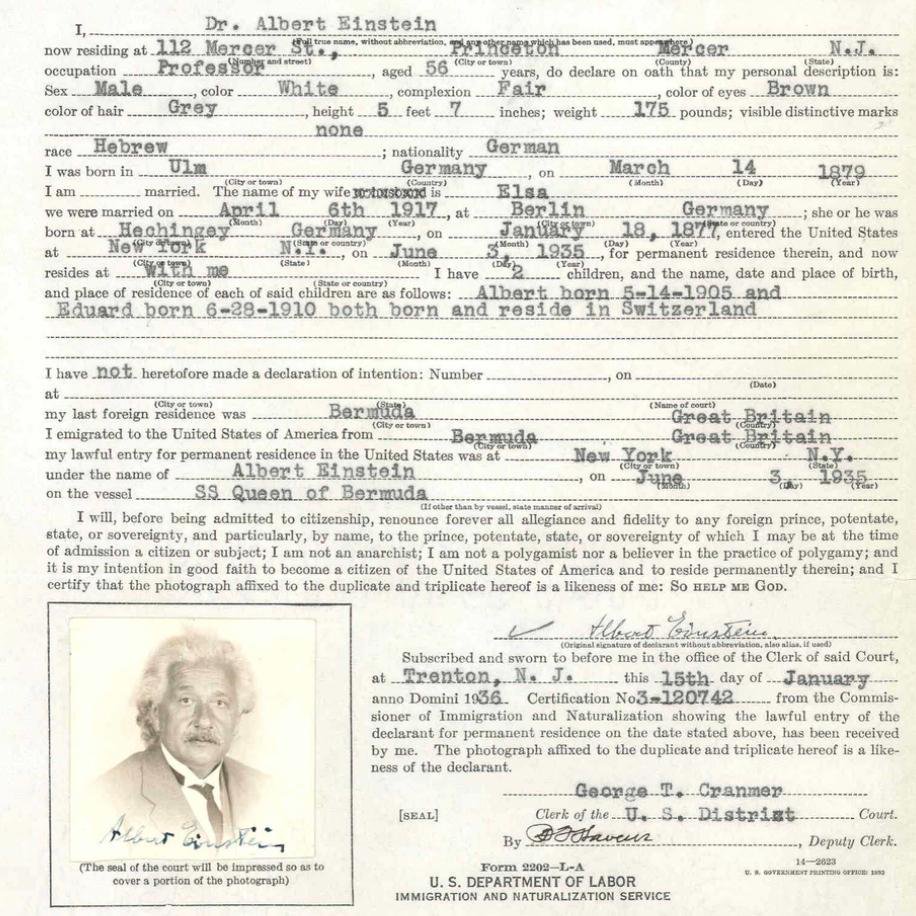 I, Dr. Albert Einstein
(Full true name, without abbreviation, and any other name which has been used, must appear here)
now residing at 112 Mercer St., Princeton Mercer N.J.
(Number and street) (City or town) (County) (State)
occupation Professor, aged 56 years, do declare on oath that my personal description is:
Sex Male, color White, complexion Fair, color of eyes Brown
color of hair Grey, height 5 feet 7 inches; weight 175 pounds; visible distinctive marks
none
race Hebrew; nationality German
I was born in Ulm Germany, on March 14 1879
(City or town) (Country) (Month) (Day) (Year)
I am married. The name of my wife or husband is Elsa
we were married on April 6th 1917, at Berlin Germany; she or he was
(Month) (Day) (Year) (City or town) (State or country)
born at Hechingey Germany, on January 18, 1877, entered the United States
(City or town) (State or country) (Month) (Day) (Year)
at New York N.Y., on June 3, 1935, for permanent residence therein, and now
(City or town) (State) (Month) (Day) (Year)
resides at with me I have 2 children, and the name, date and place of birth,
(City or town) (State or country)
and place of residence of each of said children are as follows: Albert born 5-14-1905 and
Eduard born 6-28-1910 both born and reside in Switzerland
I have not heretofore made a declaration of intention: Number, on
(Date)
at
(City or town) (State) (Name of court)
my last foreign residence was Bermuda Great Britain
(City or town) (Country)
I emigrated to the United States of America from Bermuda Great Britain
(City or town) (Country)
my lawful entry for permanent residence in the United States was at New York N.Y.
(City or town) (State)
under the name of Albert Einstein, on June 3, 1935
(Month) (Day) (Year)
on the vessel SS Queen of Bermuda
(If other than by vessel, state manner of arrival)
I will, before being admitted to citizenship, renounce forever all allegiance and fidelity to any foreign prince, potentate,
state, or sovereignty, and particularly, by name, to the prince, potentate, state, or sovereignty of which I may be at the time
of admission a citizen or subject; I am not an anarchist; I am not a polygamist nor a believer in the practice of polygamy; and
it is my intention in good faith to become a citizen of the United States of America and to reside permanently therein; and I
certify that the photograph affixed to the duplicate and triplicate hereof is a likeness of me: So HELP ME GOD.
Albert Einstein
(Original signature of declarant without abbreviation, also alias, if used)
Subscribed and sworn to before me in the office of the Clerk of said Court,
at Trenton, N. J. this 15th day of January
anno Domini 1936. Certification No 3-120742 from the Commis-
sioner of Immigration and Naturalization showing the lawful entry of the
declarant for permanent residence on the date stated above, has been received
by me. The photograph affixed to the duplicate and triplicate hereof is a like-
ness of the declarant.
George T. Cranmer
[SEAL] Clerk of the U. S. District Court.
By, Deputy Clerk.
Albert Einstein
(The seal of the court will be impressed so as to
cover a portion of the photograph)
Form 2202-L-A
U. S. DEPARTMENT OF LABOR
IMMIGRATION AND NATURALIZATION SERVICE
14-2623
U. S. GOVERNMENT PRINTING OFFICE: